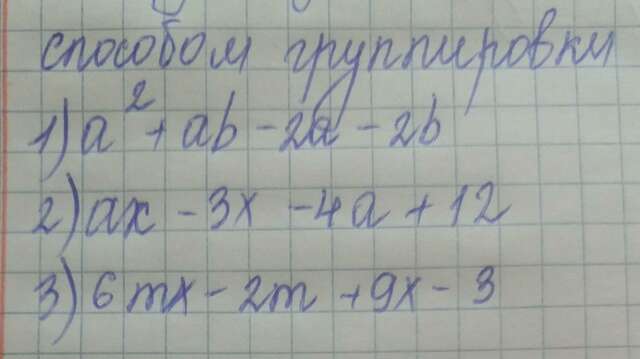 способом группировки
1) a² + ab - 2a - 2b
2) ax - 3x - 4a + 12
3) 6mx - 2m + 9x - 3